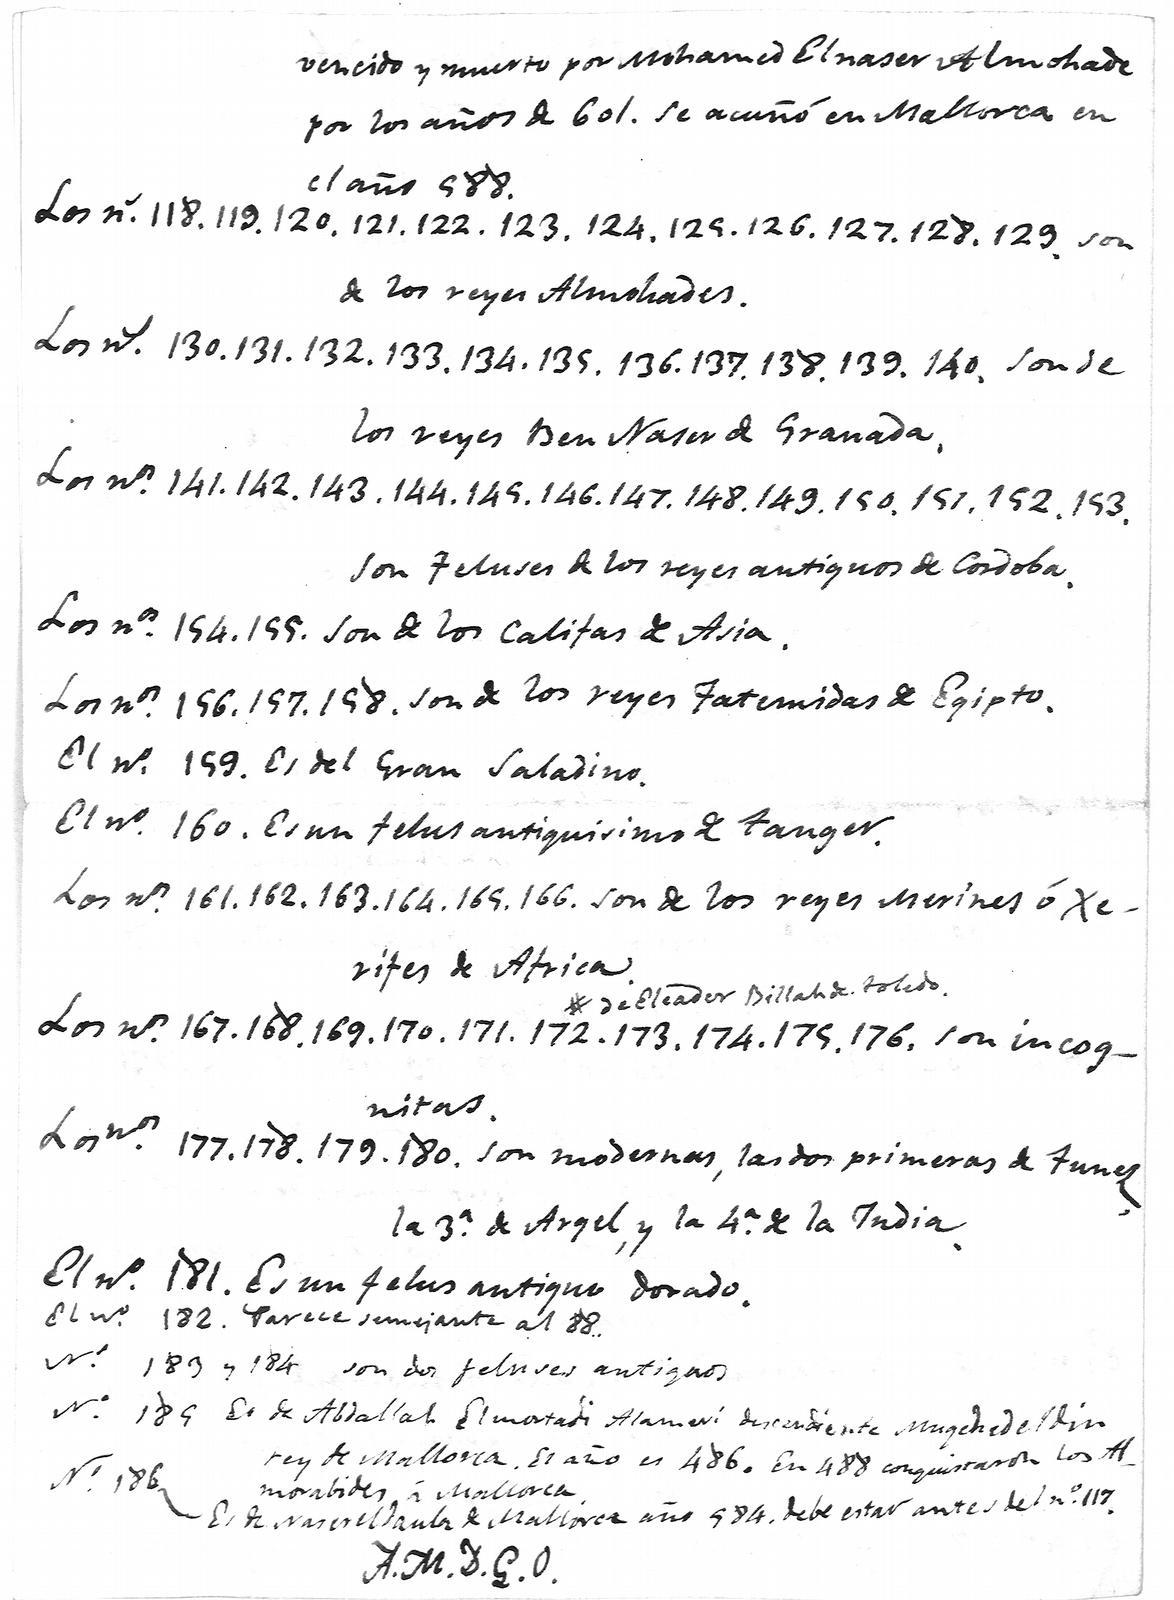 vencido y muerto por Mohamed Elnaser Almohade
por los años de 601. Se acuñó en Mallorca en
el año 588.
Los nˢ. 118. 119. 120. 121. 122. 123. 124. 125. 126. 127. 128. 129. son
de los reyes Almohades.
Los nˢ. 130. 131. 132. 133. 134. 135. 136. 137. 138. 139. 140. son de
los reyes Ben Naser de Granada.
Los nᵒˢ. 141. 142. 143. 144. 145. 146. 147. 148. 149. 150. 151. 152. 153.
son Feluses de los reyes antiguos de Cordoba.
Los nᵒˢ. 154. 155. son de los Califas de Asia.
Los nᵒˢ. 156. 157. 158. son de los reyes Fatemidas de Egipto.
El nº. 159. Es del Gran Saladino.
El nº. 160. Es un felus antiquisimo de Tanger.
Los nᵒˢ. 161. 162. 163. 164. 165. 166. son de los reyes Merines ó Xe-
rifes de Africa.
* de Eleador Billah de Toledo.
Los nᵒˢ. 167. 168. 169. 170. 171. 172. 173. 174. 175. 176. son incog-
nitas.
Los nᵒˢ. 177. 178. 179. 180. son modernas, las dos primeras de Tunez,
la 3ª. de Argel, y la 4ª. de la India.
El nº. 181. Es un felus antiguo dorado.
El nº. 182. Parece semejante al 88.
Nº. 183 y 184 son dos feluses antiguos
Nº. 185 Es de Abdallah Elmortadi Alameri descendiente Mugehed eldin
rey de Mallorca. El año es 486. En 488 conquistaron los Al-
morabides á Mallorca.
Nº. 186
Es de Naser eldaula de Mallorca año 584. debe estar antes del nº. 117.
A.M.D.G.O.